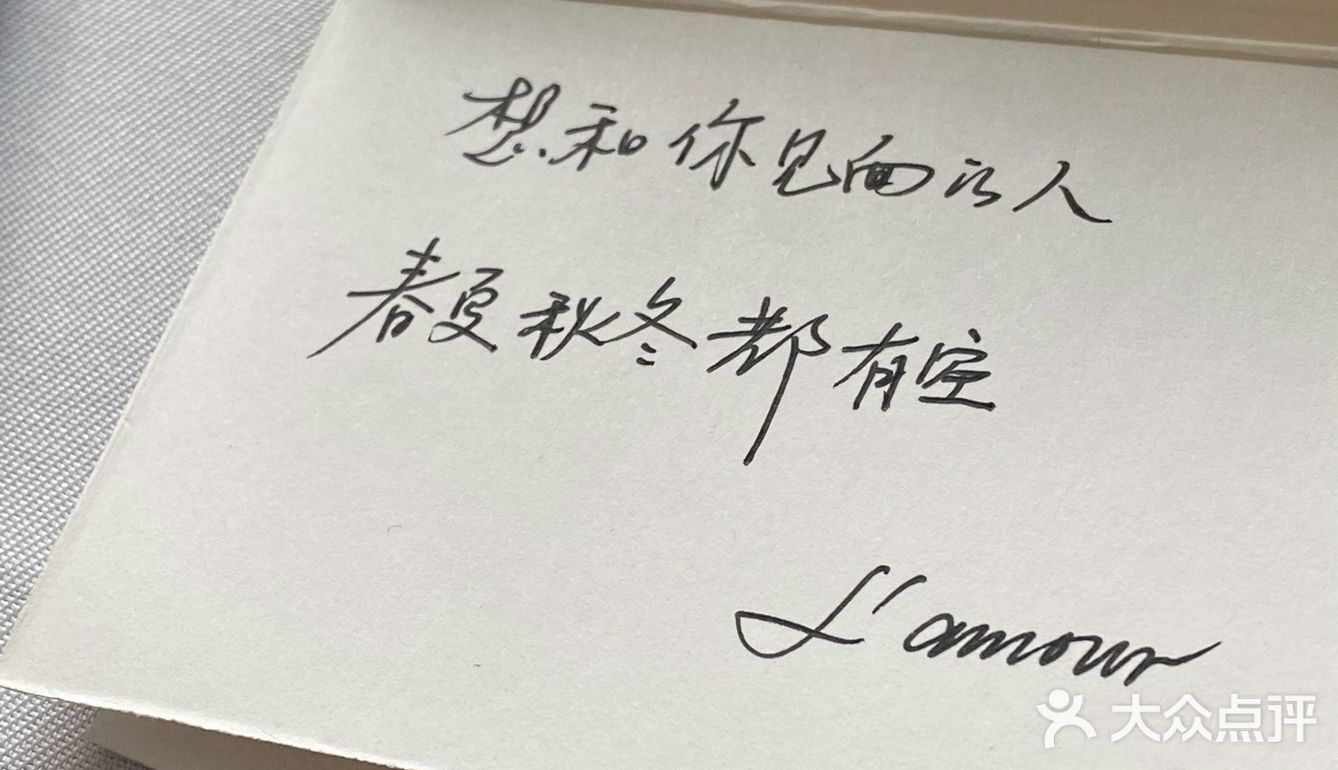 想和你见面的人
春夏秋冬都有空
L'amour
大众点评